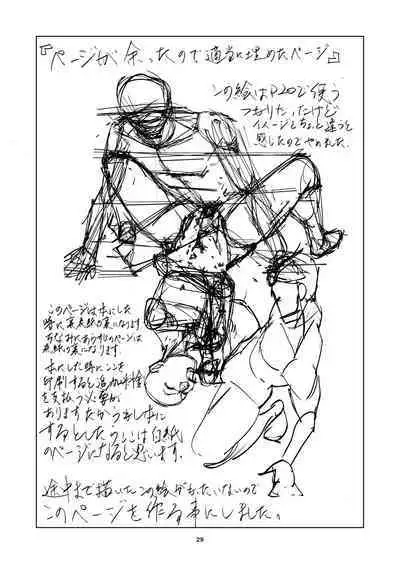 『ページが余ったので適当に埋めたページ』
この絵はP.20で使う
つもりだったけど
イメージとちょっと違うと
感じたのでやめました
このページは本にした
時に裏表紙の裏になります
ちなみに
表紙の裏になります.
本にした時にここを
印刷すると追加料金
を支払う必要が
ありますだから
するとしたらここは白紙
のページになると思います.
途中まで描いたこの絵がもったいないので
このページを作る事にしました。
29